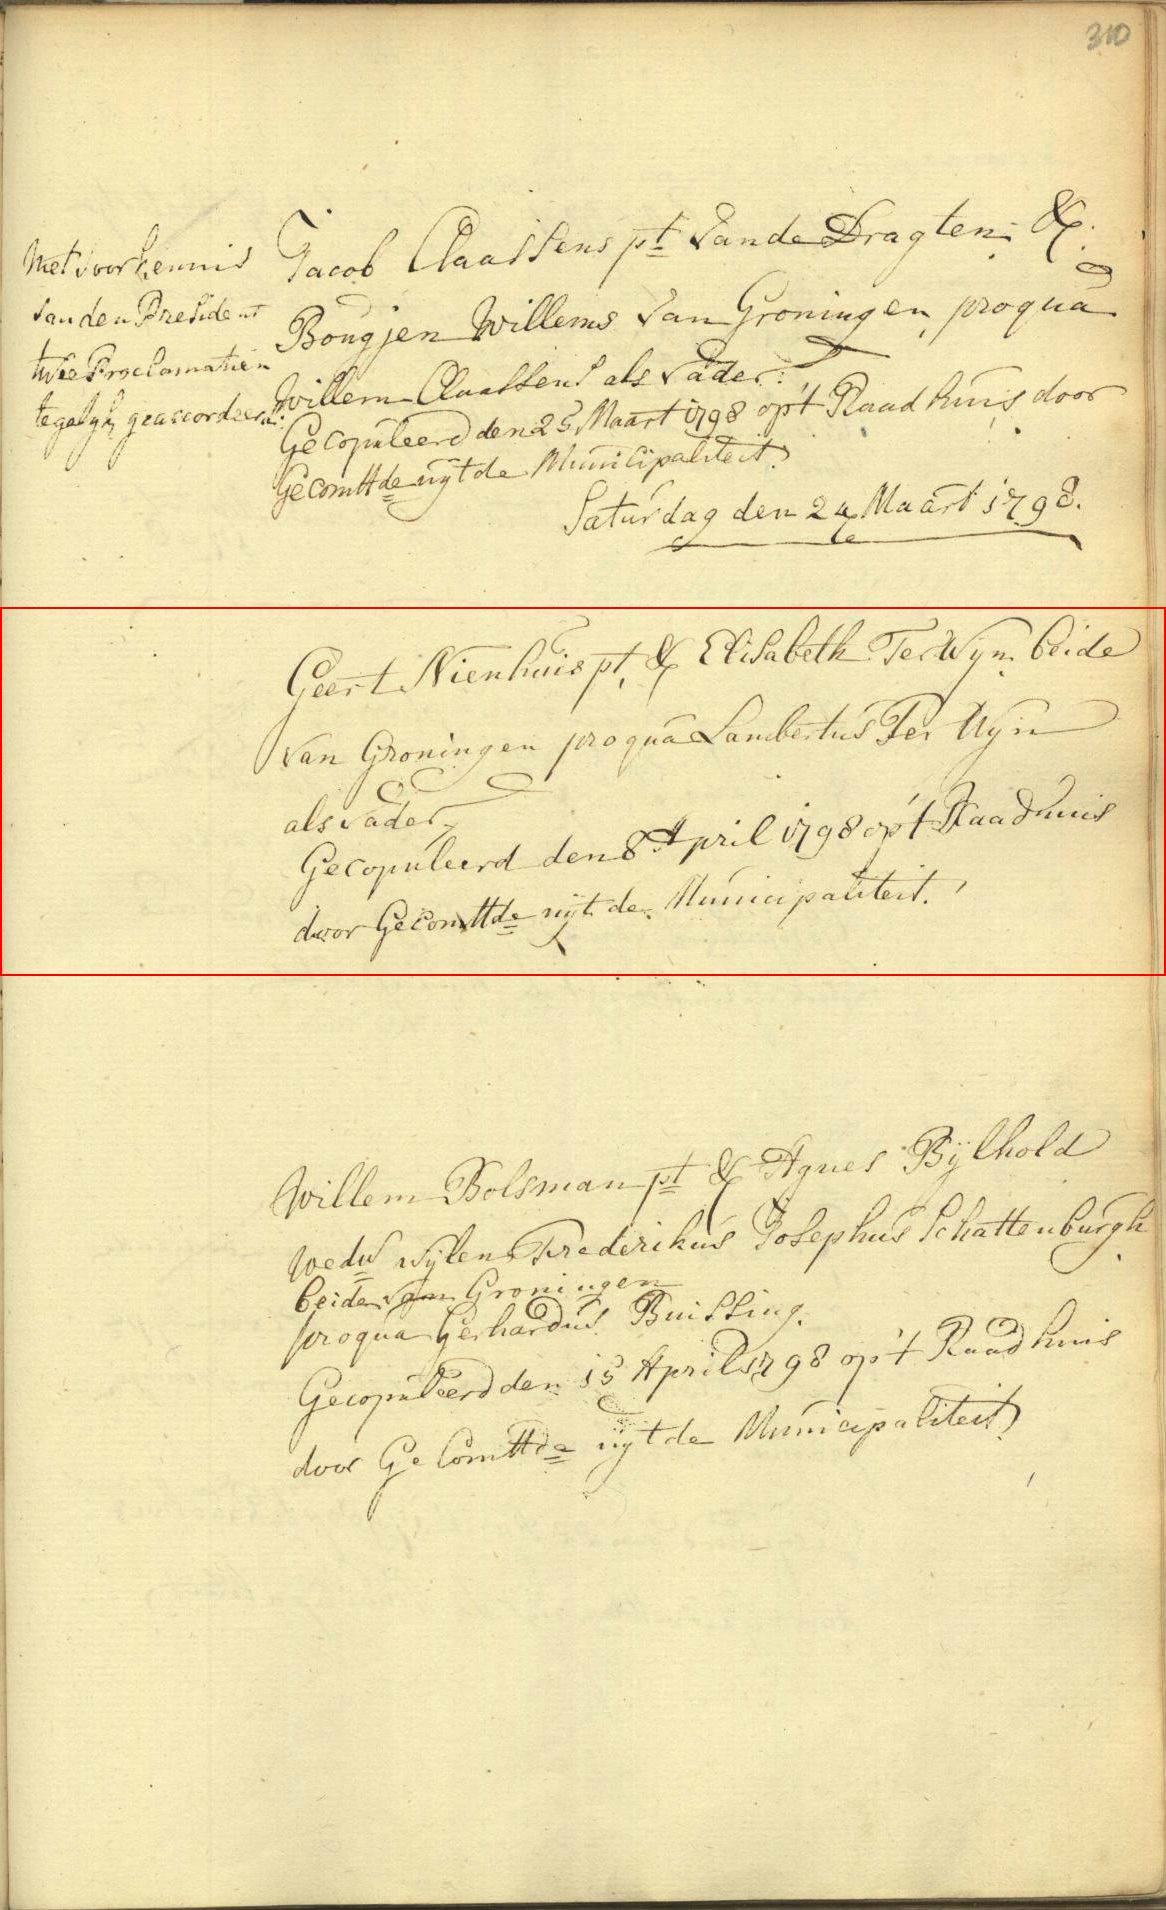 310
Met voorkennis
van den President
twee Proclamatien
tegelyk geaccordeerd.
Jacob Claassens pt van de Dragten &
Bougjen Willems van Groningen, proqua
Willem Claassens als vader:
Gecopuleerd den 25 Maart 1798 op't Raadhuis door
Gecomttde uyt de Municipaliteit.
Saturdag den 24 Maart 1798.
Geert Nienhuis pt, & Elisabeth Ter Wyn beide
van Groningen proqua Lambertus Ter Wyn
als vader,
Gecopuleerd den 8 April 1798 op't Raadhuis
door Gecomttde uyt de Municipaliteit.
Willem Bolsman pt & Agnes Bylhold
wedw wylen Frederikus Josephus Schattenburgh
beide van Groningen
proqua Gerhardus Buissing.
Gecopuleerd den 15 April 1798 op't Raadhuis
door GeComttde uyt de Municipaliteit